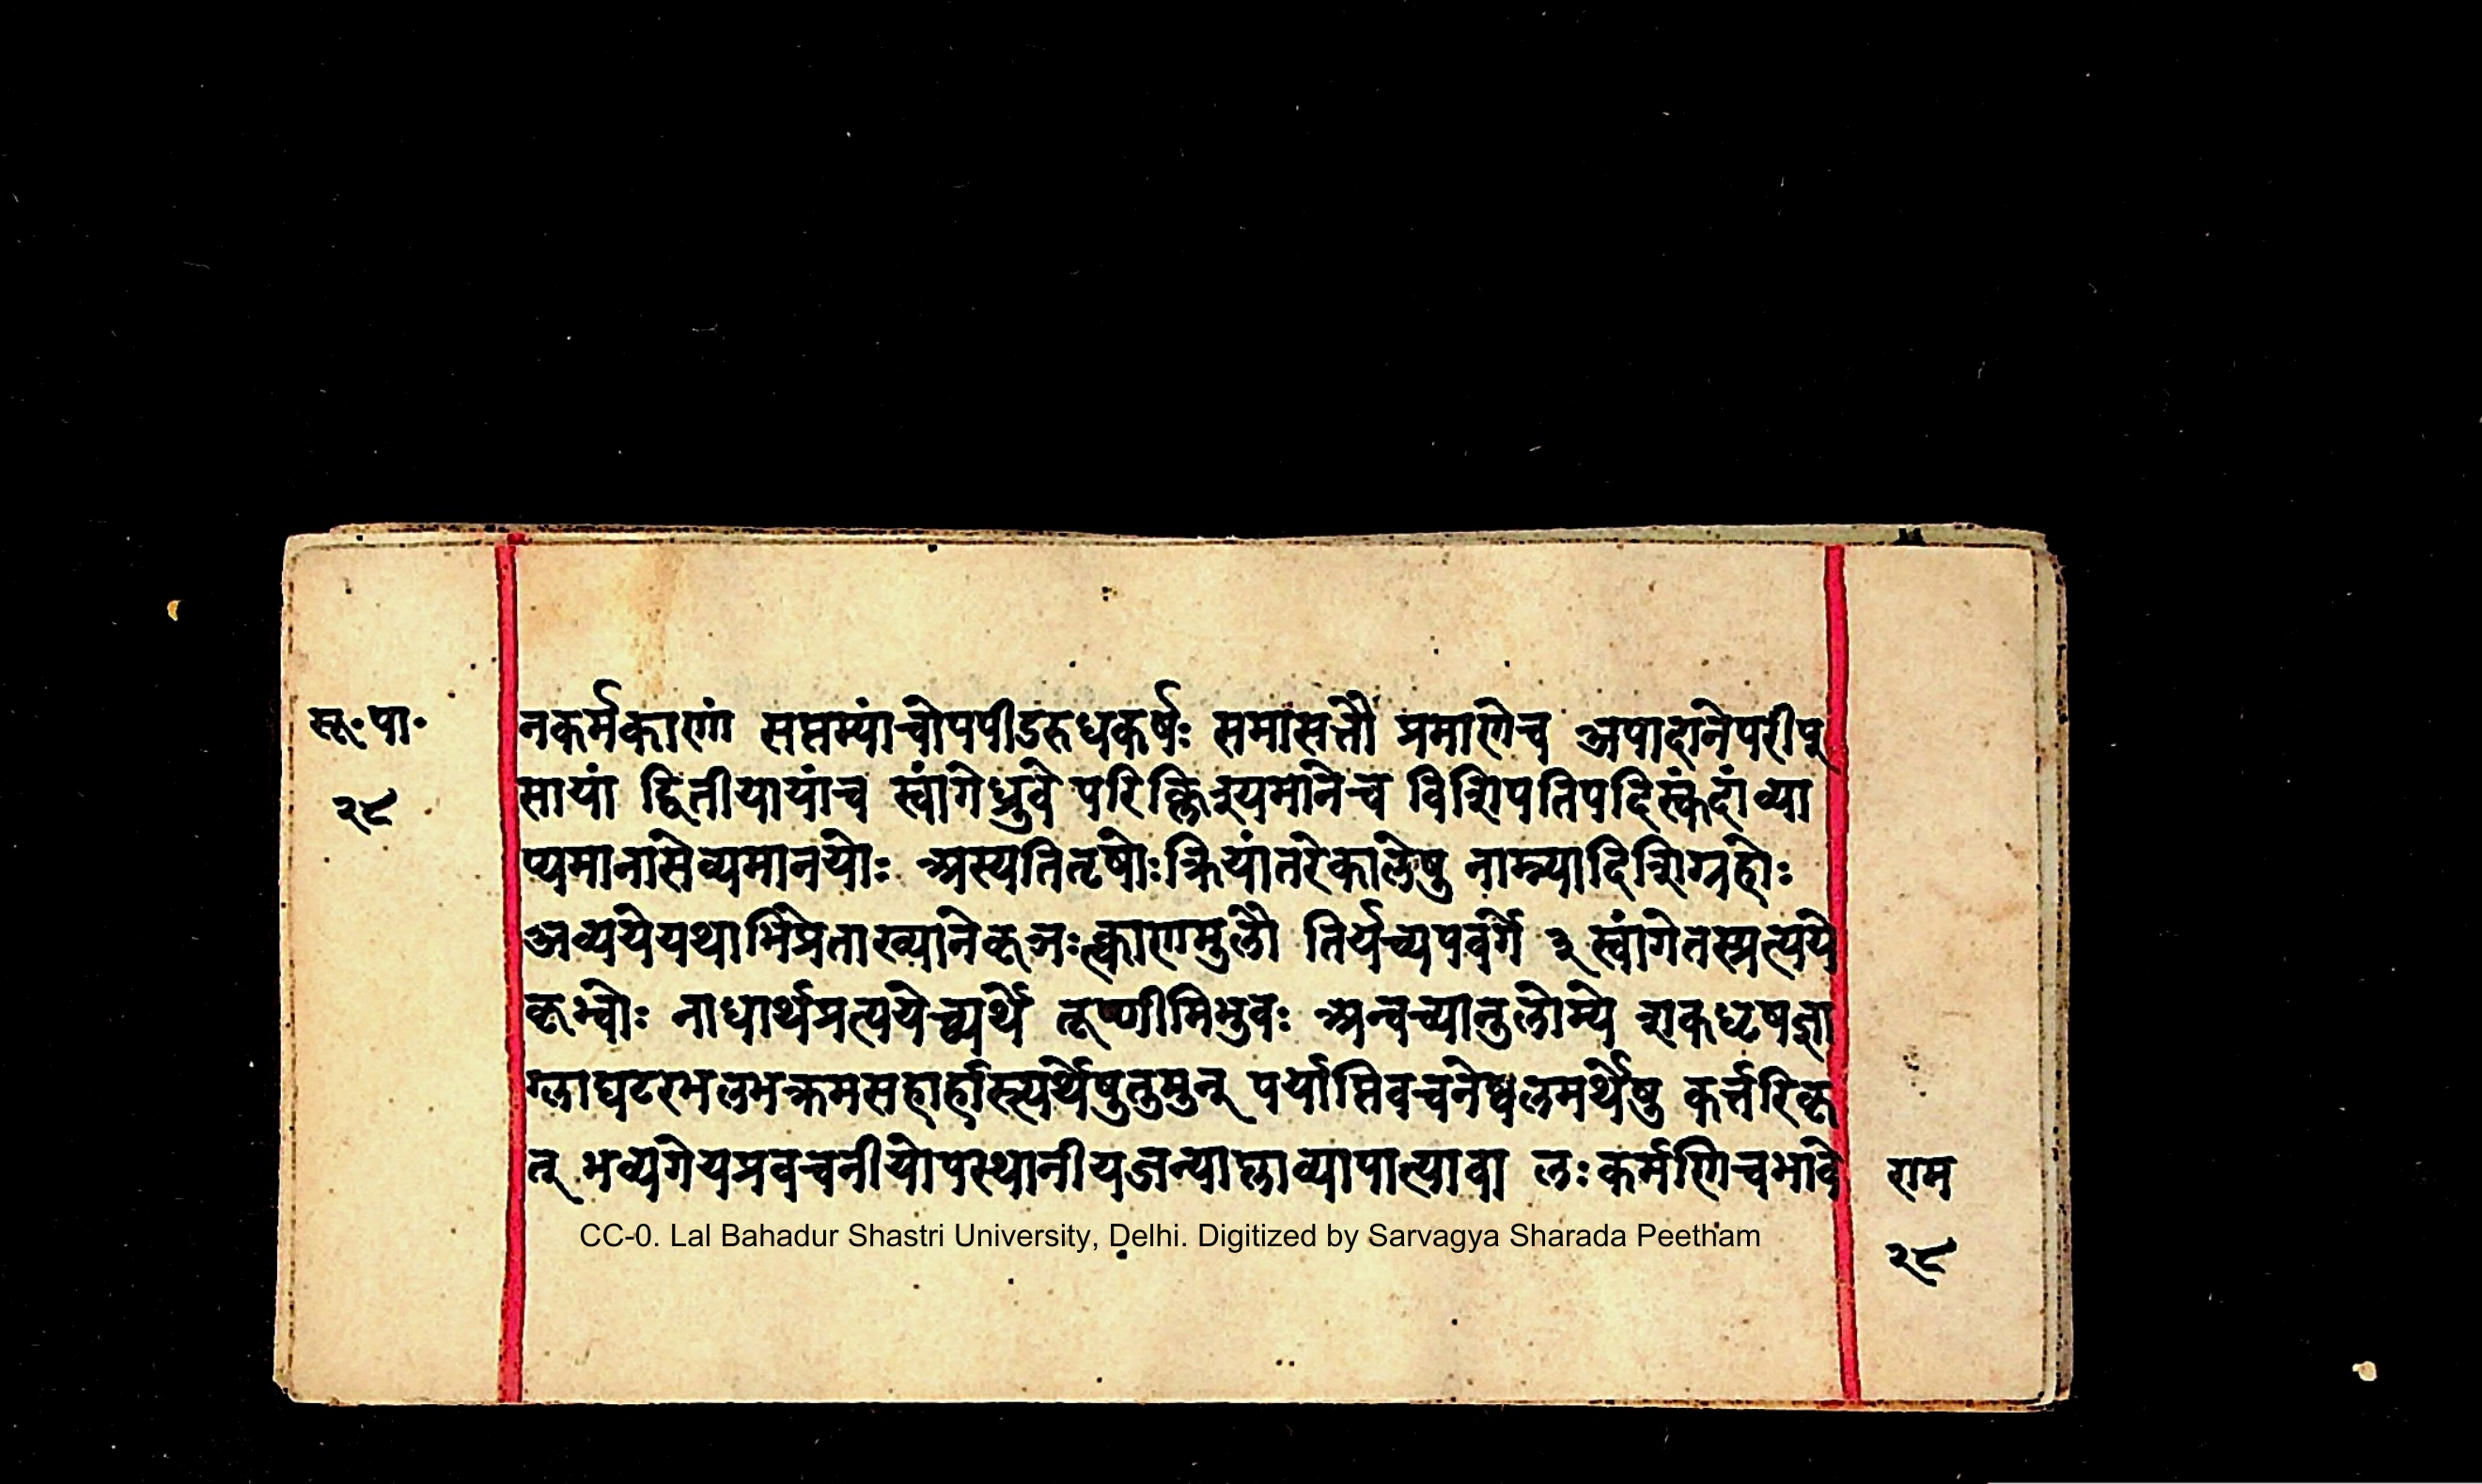 सू॰पा॰
२८
नकर्मकाणां सप्तम्यांचोपपीडरुधकर्षः समासत्तौ प्रमाणेच अपादानेपरीप्
सायां द्वितीयायांच स्वांगेध्रुवे परिक्लिश्यमानेच विशिपतिपदिस्कंदांव्या
प्यमानासेव्यमानयोः अस्यतितृषोःक्रियांतरेकालेषु नाम्न्यादिशिग्रहोः
अव्ययेयथाभिप्रेताख्यानेकृञःत्काणमुलौ तिर्यच्यपवर्गे ३ स्वांगेतस्प्रत्यये
कृभ्वोः नाधार्थप्रत्ययेच्व्यर्थे तूष्णीमिभुवः अन्वच्यानुलोम्ये शकधृषज्ञा
ग्लाघटरभलभक्रमसहार्हास्त्यर्थेषुतुमुन् पर्याप्तिवचनेष्वलमर्थेषु कर्त्तरिकृ
त् भव्यगेयप्रवचनीयोपस्थानीयजन्याप्लाव्यापात्यावा लःकर्मणिचभावे
राम
२८
CC-0. Lal Bahadur Shastri University, Delhi. Digitized by Sarvagya Sharada Peetham